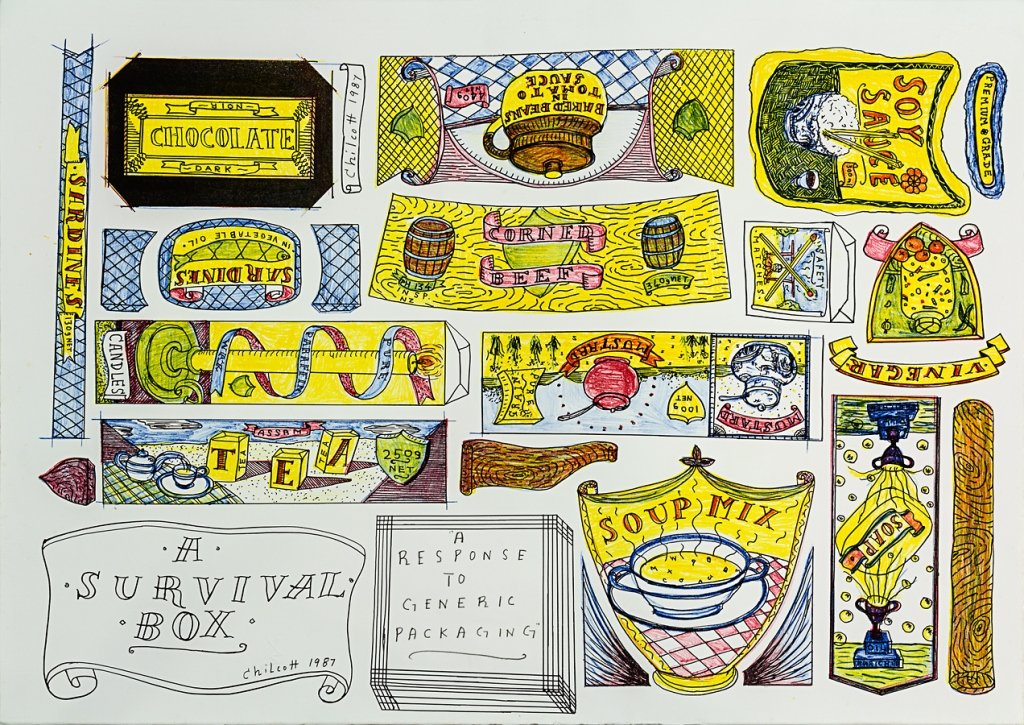 · NOIR ·
CHOCOLATE
~ DARK ~
Chilcott 1987
BAKED BEANS
IN
TOMATO
SAUCE
440g
NET
SOY
SAUCE
PREMIUM GRADE
· SARDINES ·
130g NET
IN VEGETABLE OIL
SARDINES
CORNED
BEEF
340g NET
SAFETY
MATCHES
· VINEGAR ·
CANDLES
PURE
PARAFFIN
MUSTARD
100g
NET
MUSTARD
ASSAM
TEA
TEA
TEA
250g
NET
SOUP MIX
SOAP
· A ·
· SURVIVAL ·
· BOX ·
Chilcott 1987
"A
RESPONSE
TO
GENERIC
PACKAGING"